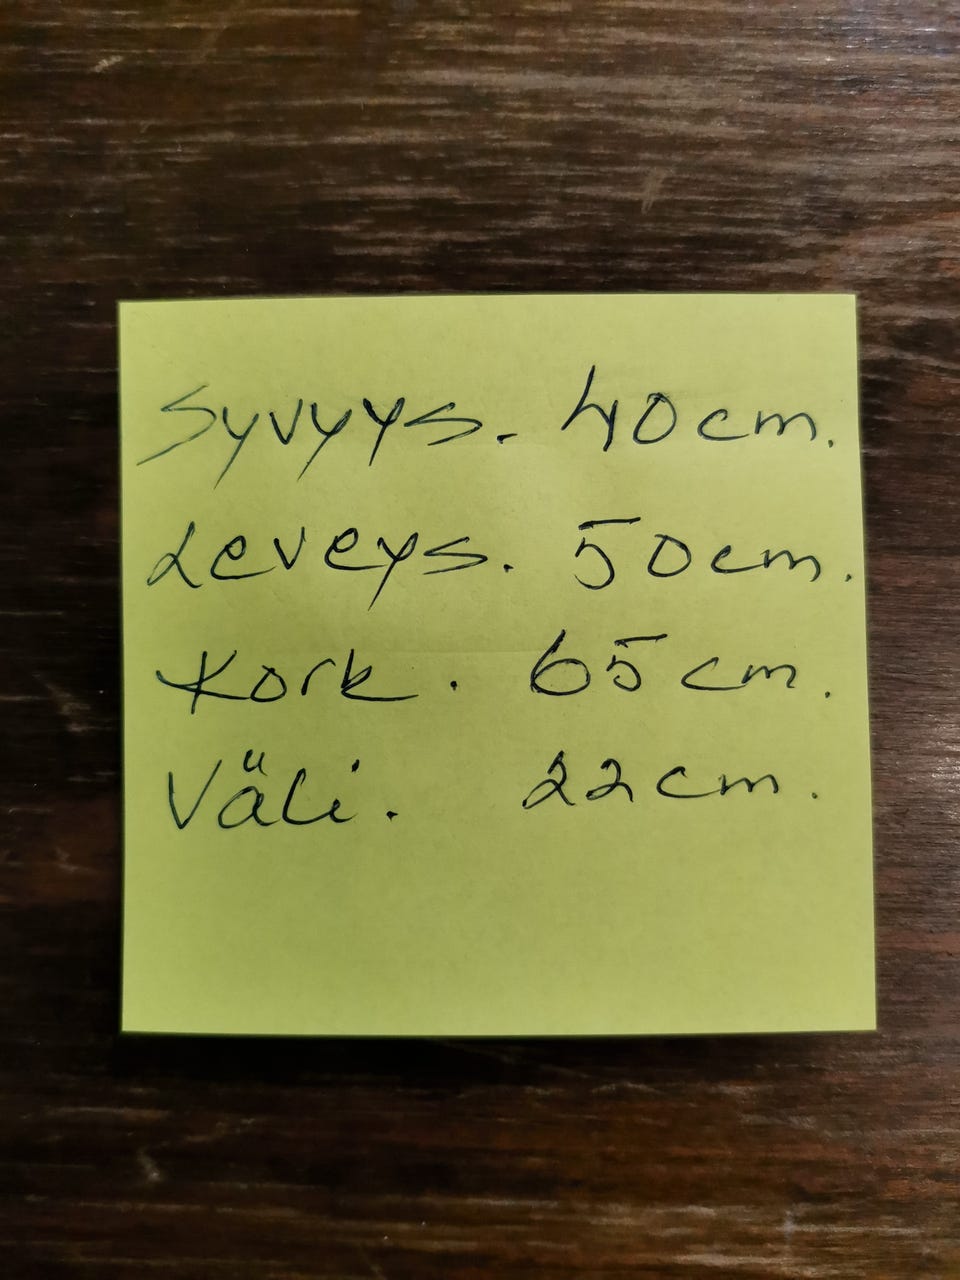 Syvyys. 40cm.
Leveys. 50cm.
Kork. 65cm.
Väli. 22cm.